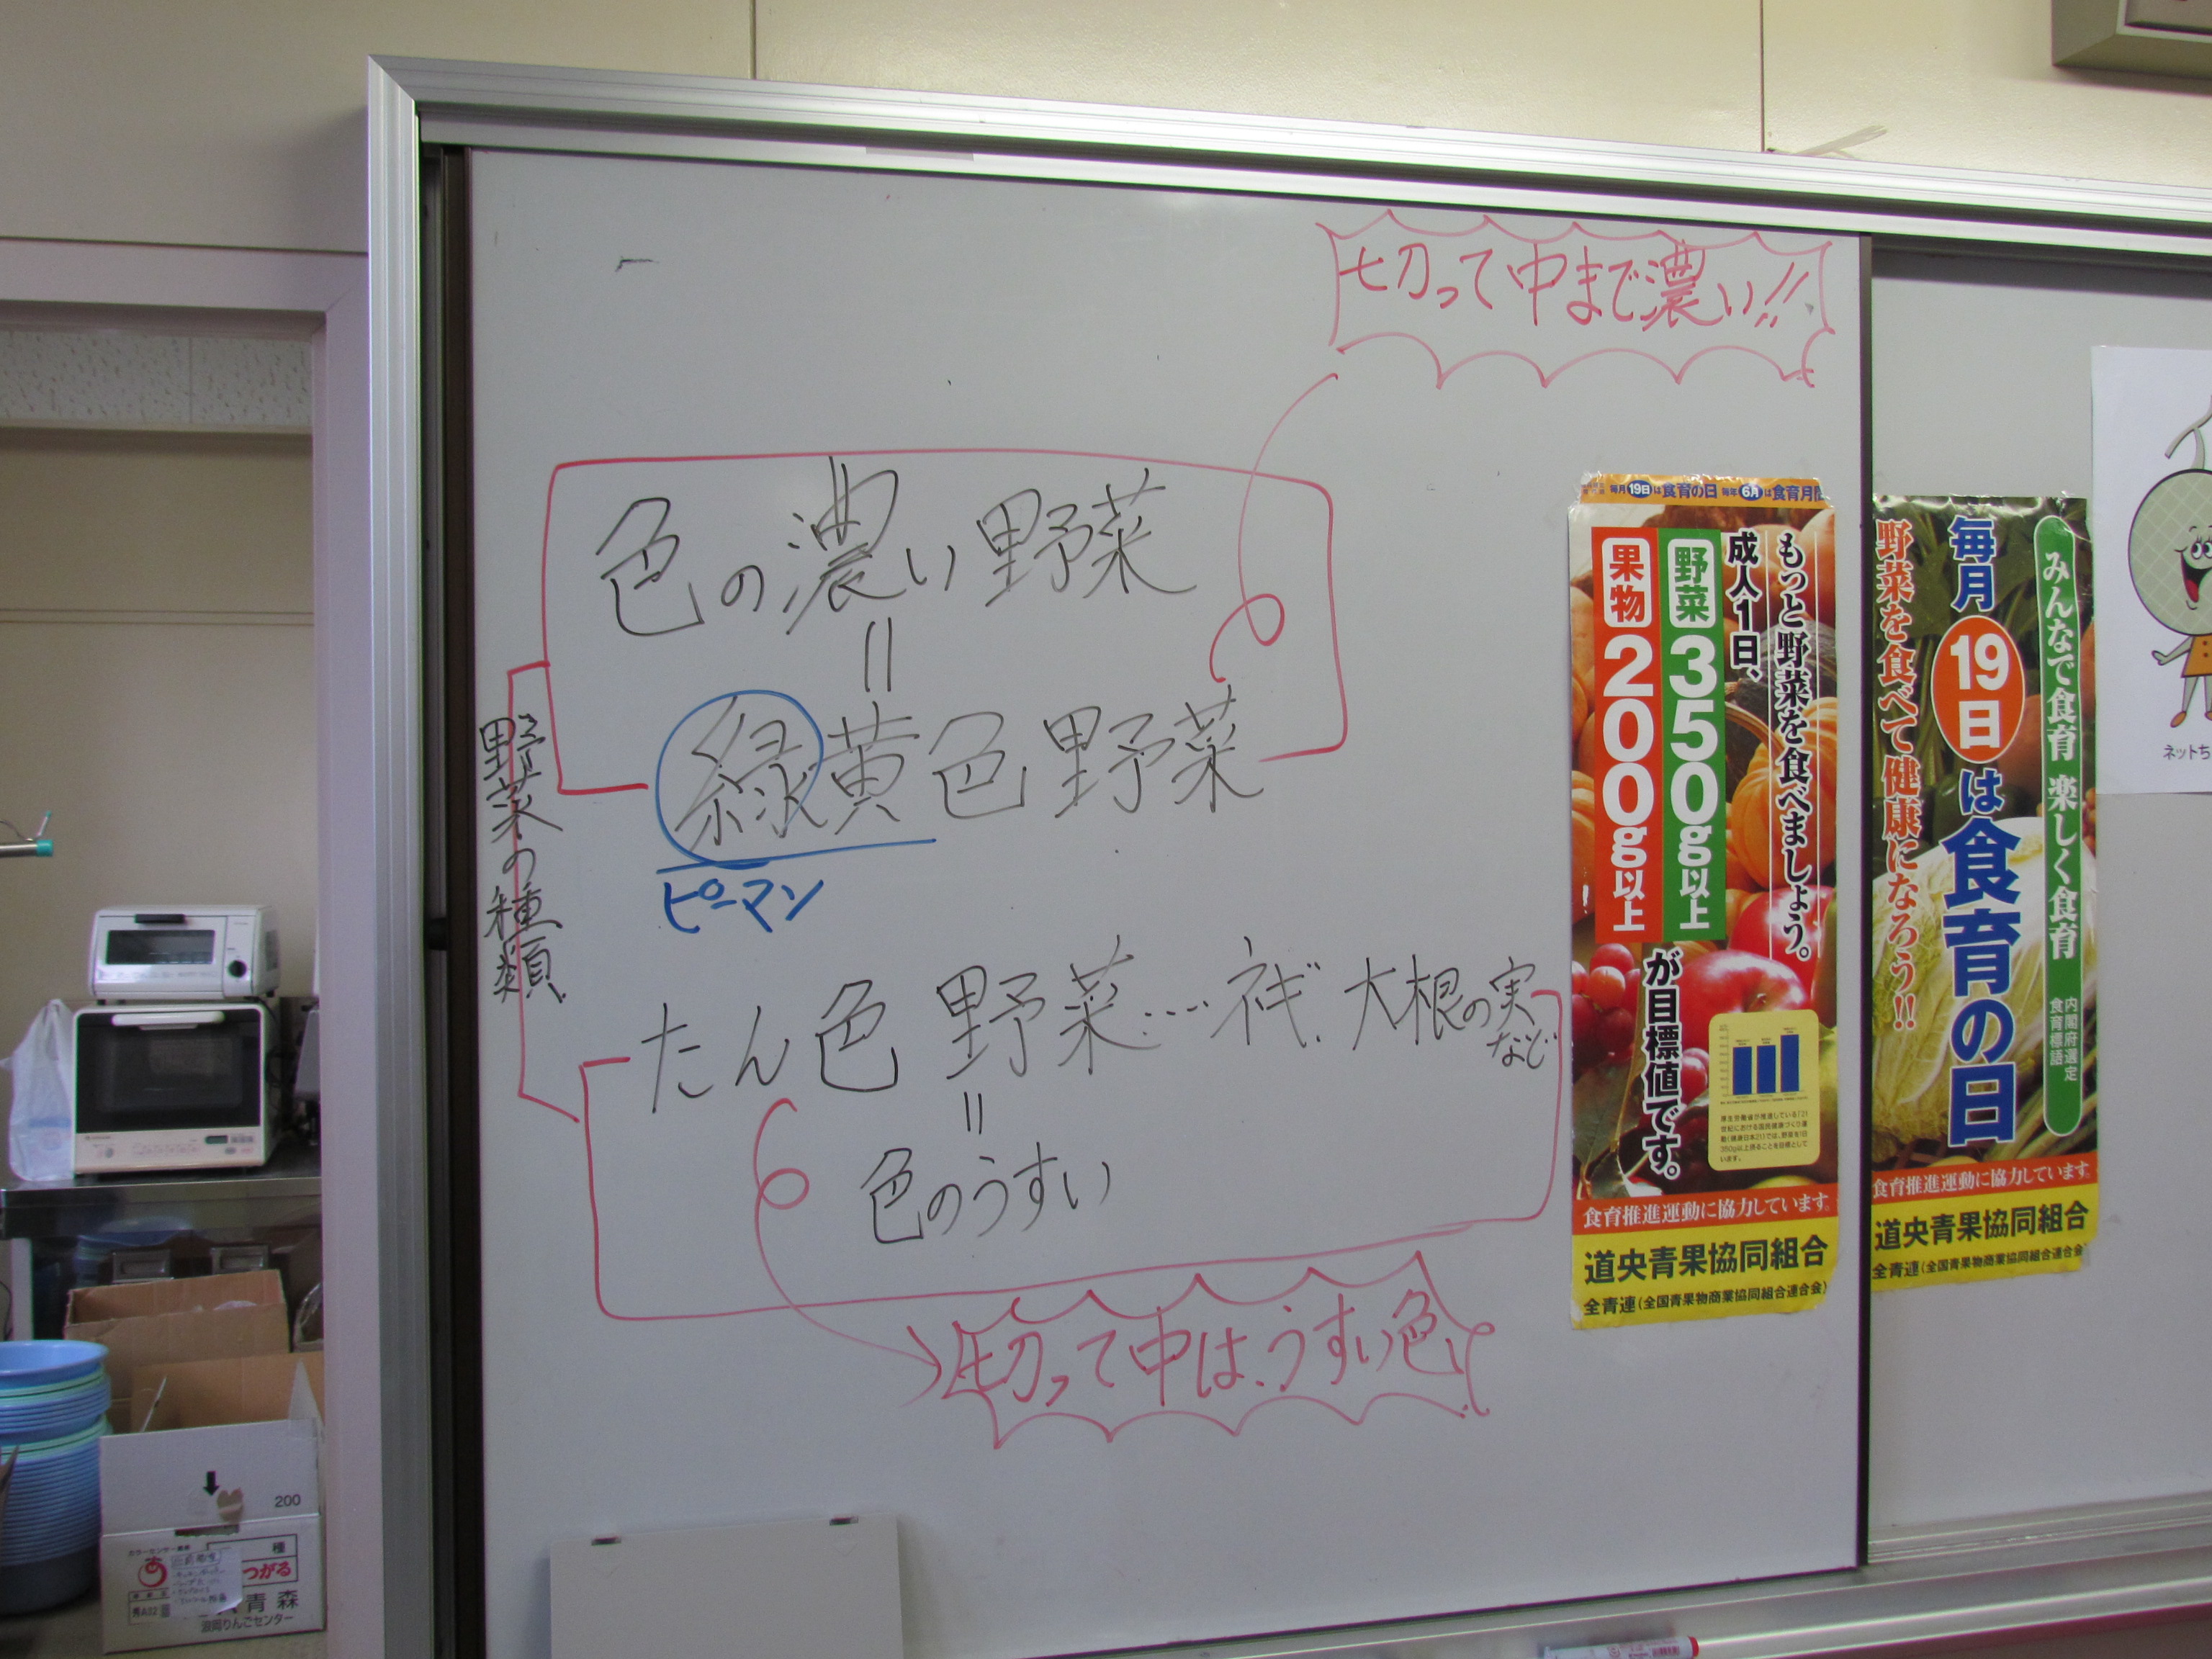 切って中まで濃い!!
色の濃い野菜
=
緑黄色野菜
ピーマン
野菜の種類
たん色野菜…ネギ、大根の実
など
=
色のうすい
切って中は、うすい色
毎月19日は食育の日 毎年6月は食育月間
もっと野菜を食べましょう。
成人1日、
野菜350g以上
果物200g以上
が目標値です。
食育推進運動に協力しています。
道央青果協同組合
全青連(全国青果物商業協同組合連合会)
みんなで食育 楽しく食育
内閣府選定
食育標語
毎月19日は食育の日
野菜を食べて健康になろう!!
食育推進運動に協力しています。
道央青果協同組合
全青連(全国青果物商業協同組合連合会)
ネットち
200
種
つがる
青森
浪岡りんごセンター